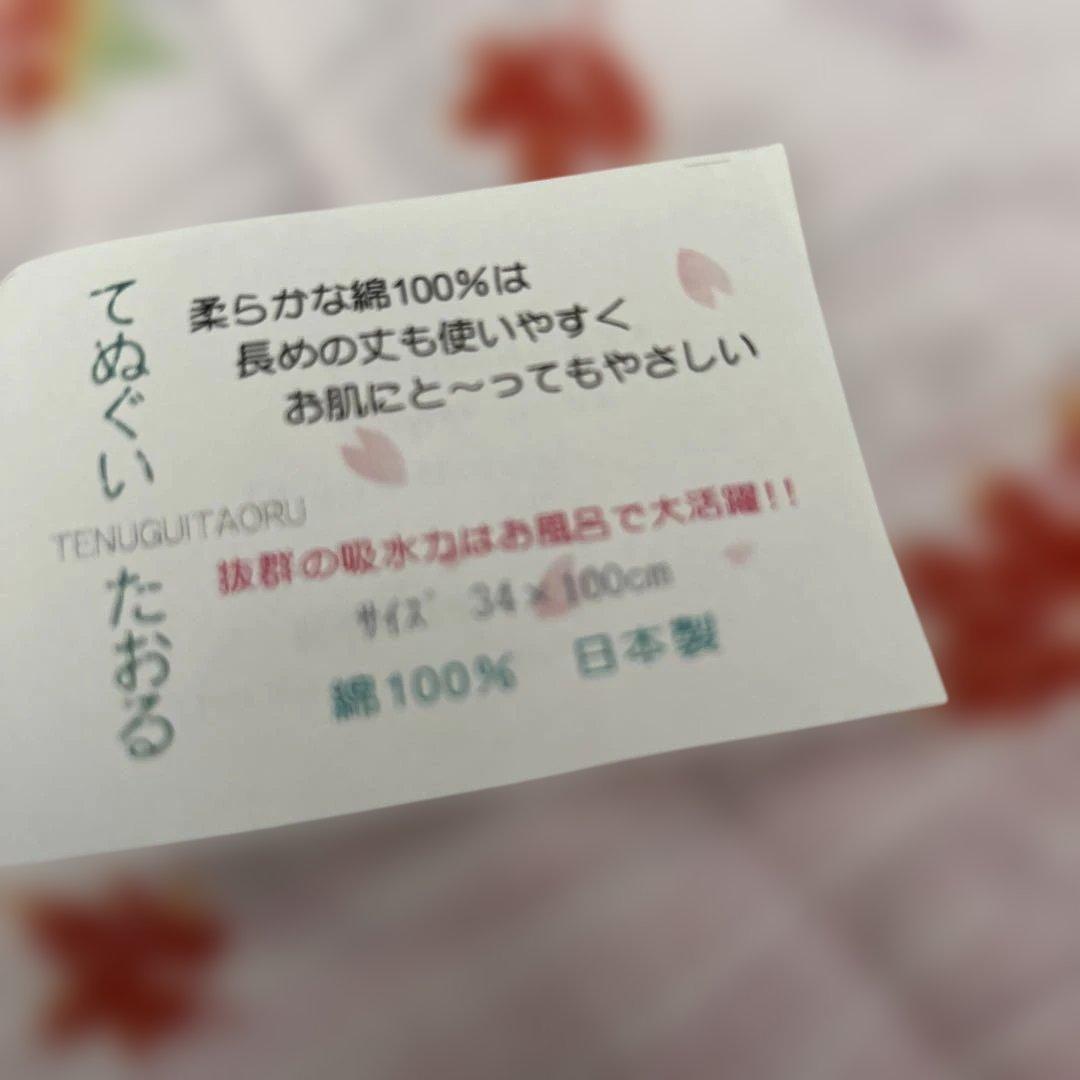 てぬぐい
TENUGUITAORU
たおる
柔らかな綿100%は
長めの丈も使いやすく
お肌にと～ってもやさしい
抜群の吸水力はお風呂で大活躍!!
サイズ 34×100cm
綿100% 日本製